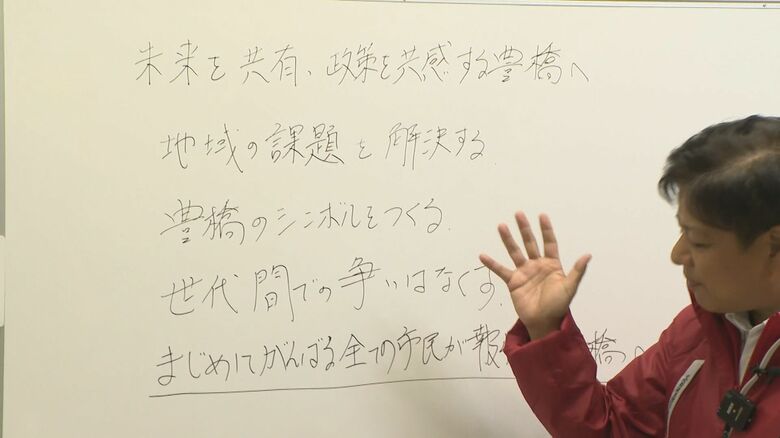 未来を共有、政策を共感する豊橋へ
地域の課題を解決する
豊橋のシンボルをつくる
世代間での争いはなくす
まじめにがんばる全ての市民が報 橋へ